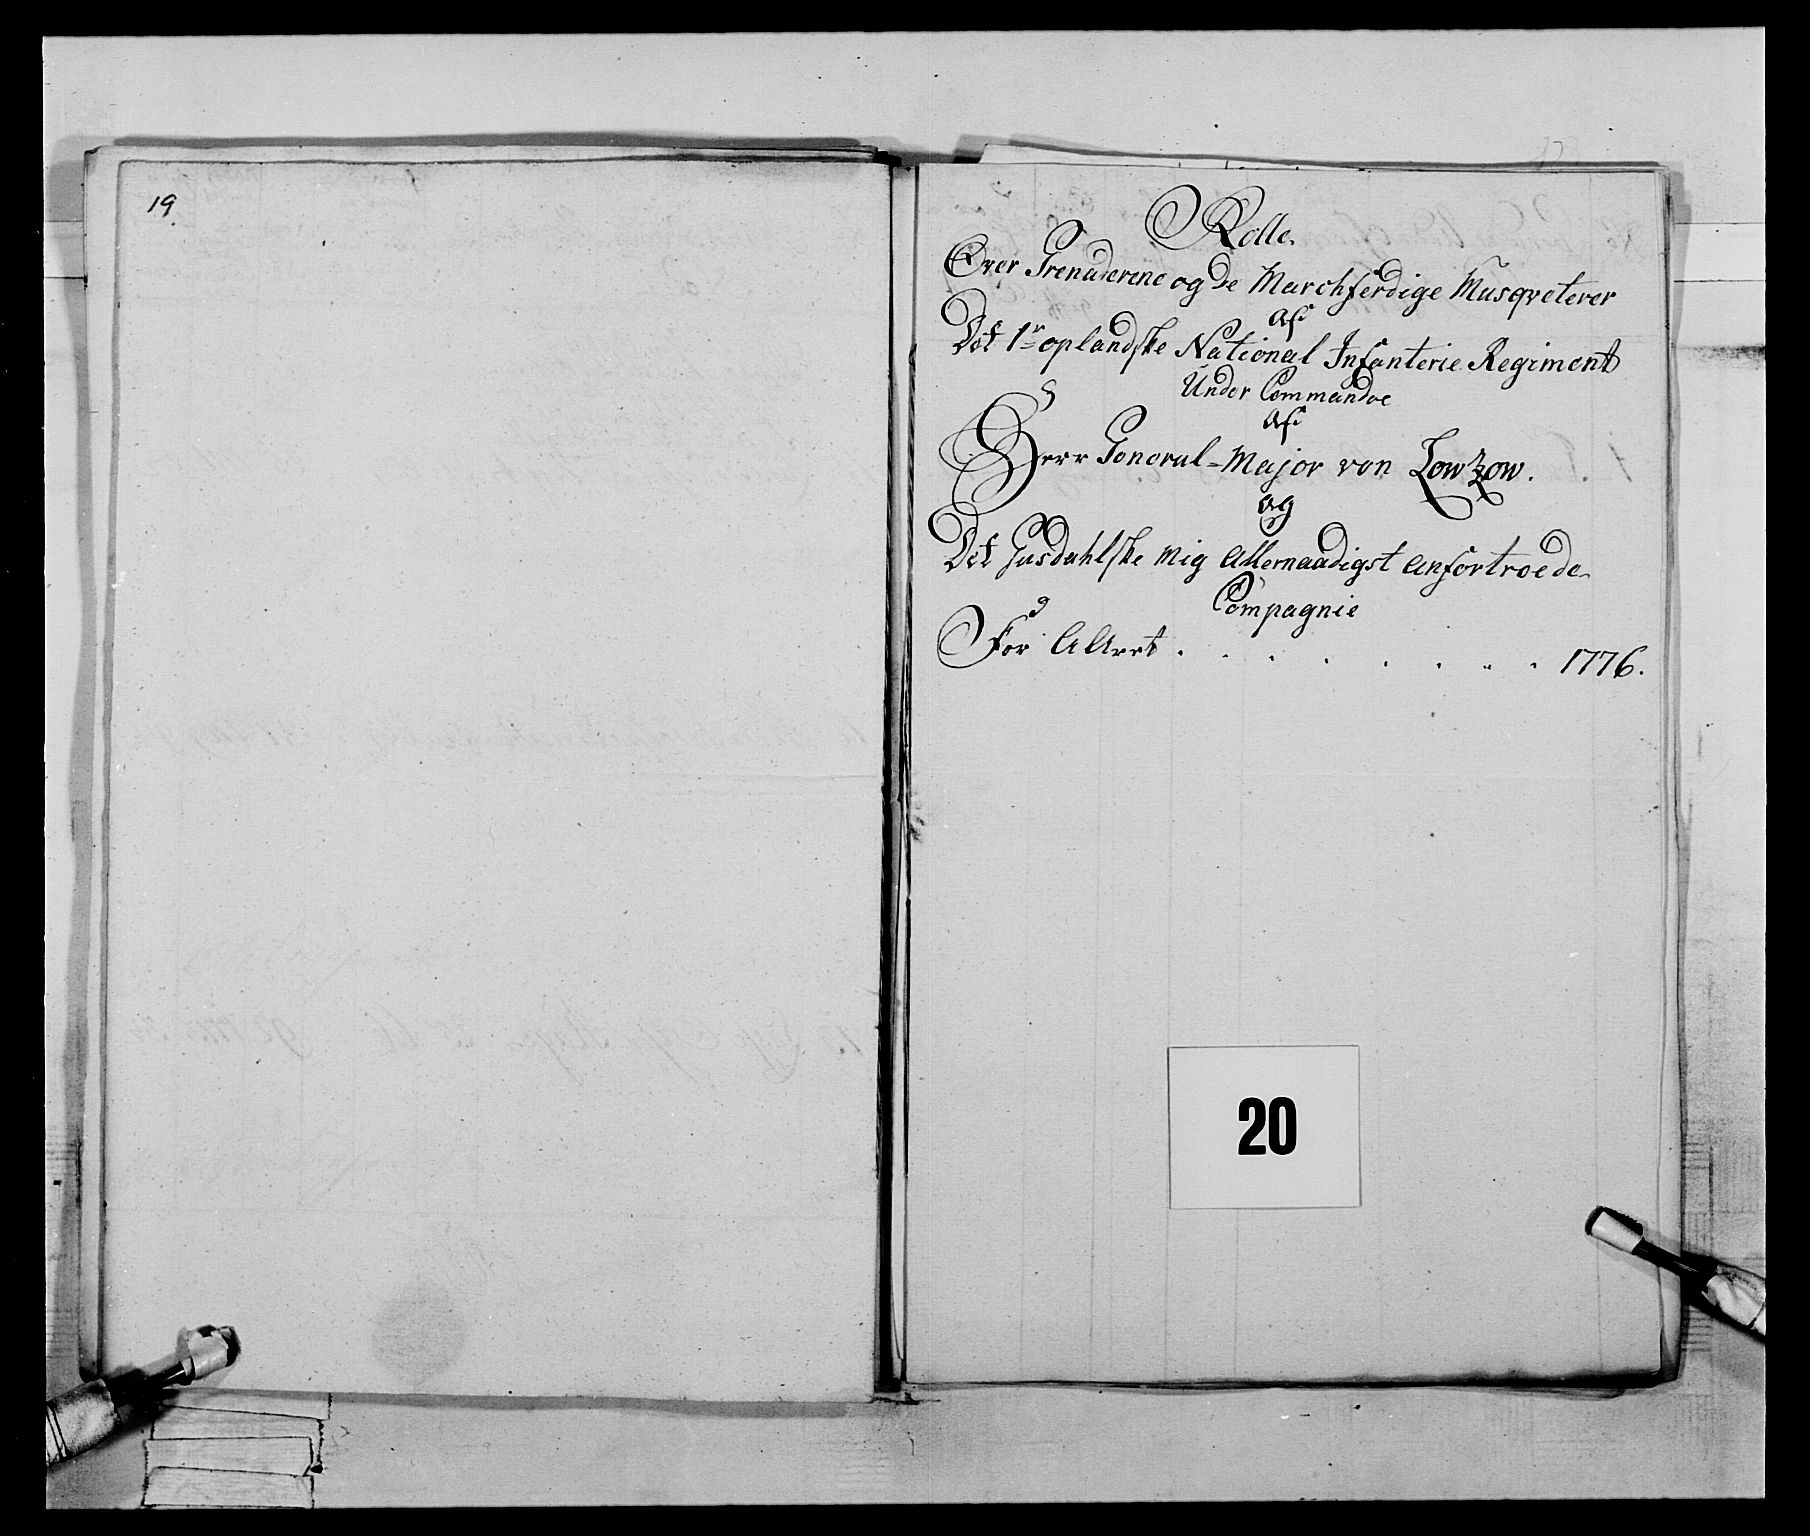 19.
Rolle.
Over Grenaderene og de Marchferdige Musqveterer
Af
Det 1r oplandske National Infanterie Regiment
Under Commandoe
Af
Herr General-Major von Lowzow.
og
Det Gusdahlske mig allernaadigst anfortroede
Compagnie
For AAret . . . . . . . . 1776.
20